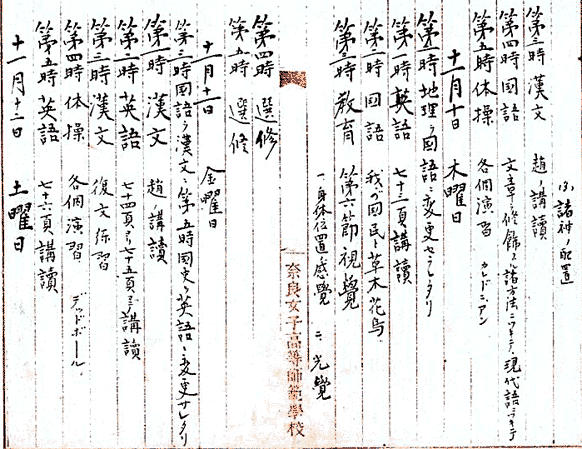 ノ配置
第三時 漢文 趙ノ講讀
第四時 國語 文章ヲ修飾スル諸方法ニツキテ、現代語ニツキテ
第五時 体操 各個演習 カレドニアン
十一月十日 木曜日
第一時 地理ヲ國語ニ変更セラレタリ
第二時 英語 七十三頁講讀
第二時 國語 我ガ國民ト草木花鳥
第三時 教育 第六節視覺
一、身体位置感覺 二、光覺
奈良女子高等師範學校
第四時 選修
第五時 選修
十一月十一日 金曜日
第三時國語ヲ漢文ニ、第五時國史ヲ英語ニ変更サレタリ
第一時 漢文 趙ノ講讀
第二時 英語 七十四頁ヨリ七十五頁マデ講讀
第三時 漢文 復文練習
第四時 体操 各個演習 デッドボール
第五時 英語 七十六頁講讀
十一月十二日 土曜日